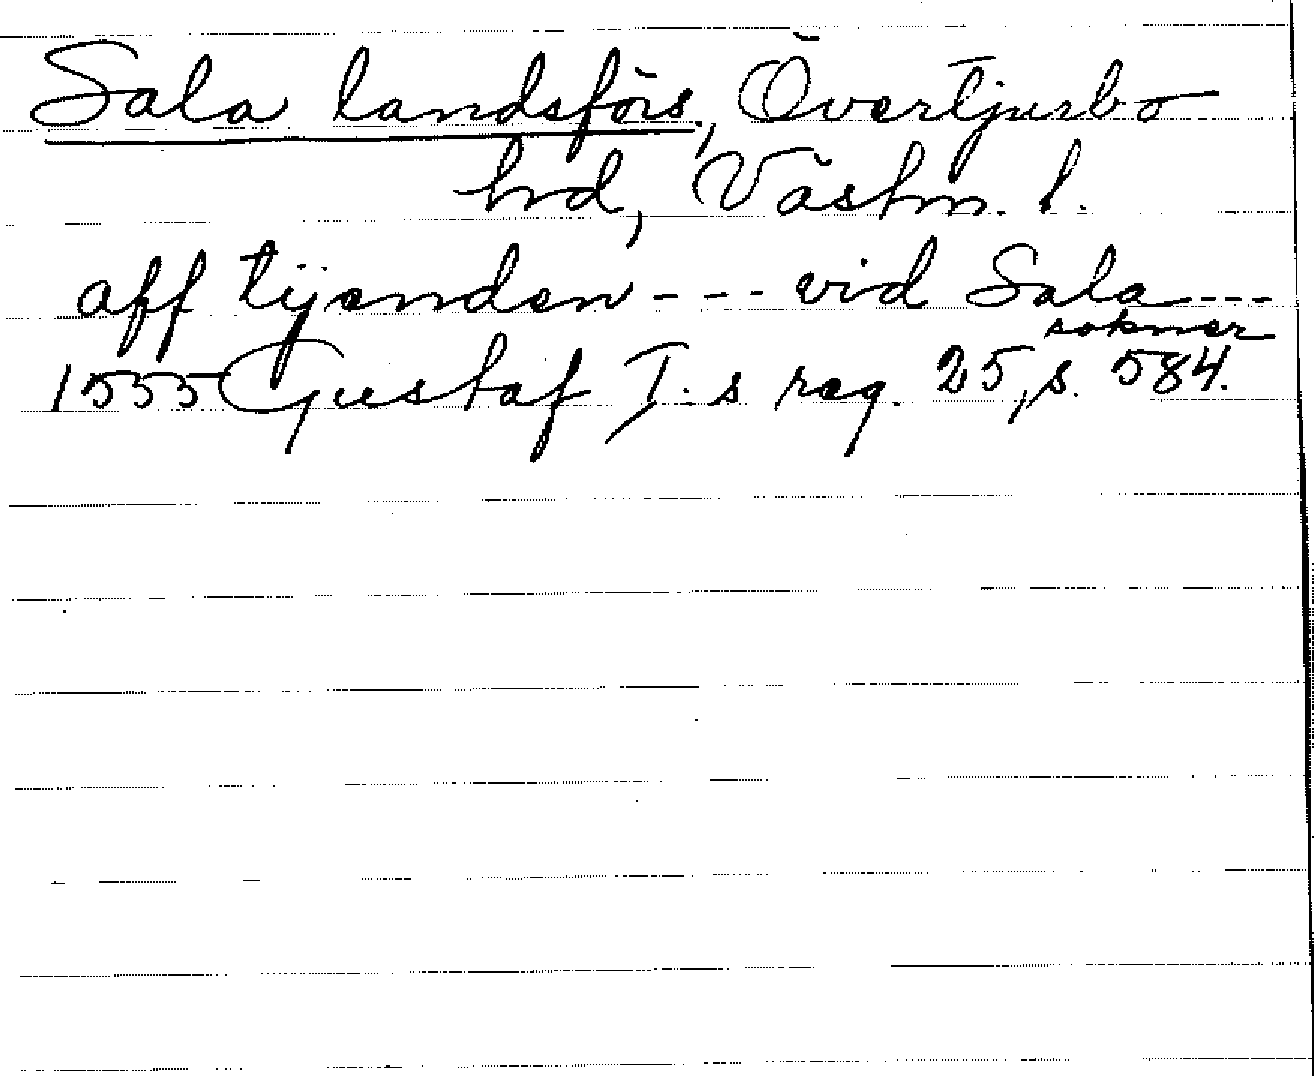 Sala landsförs., Övertjurbo
hrd, Västm. l.
aff tijenden --- vid Sala ---
sokner
1555 Gustaf I.s reg. 25, s. 584.